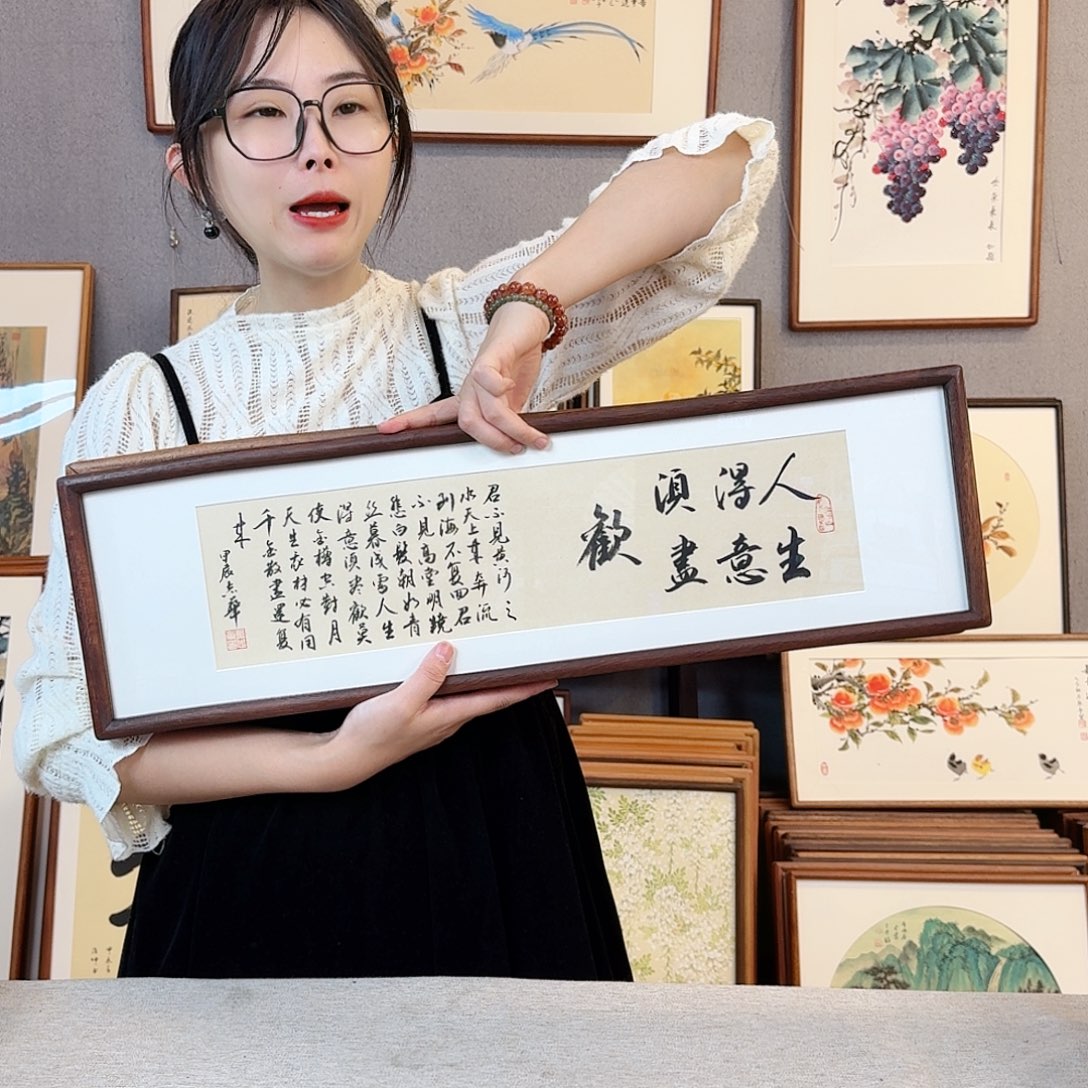 人生
得意
須盡
歡
君不見黄河之
水天上來奔流
到海不复回君
不見高堂明鏡
悲白髮朝如青
丝暮成雪人生
得意須尽歡莫
使金樽空對月
天生我材必有用
千金散盡還复
來
甲辰